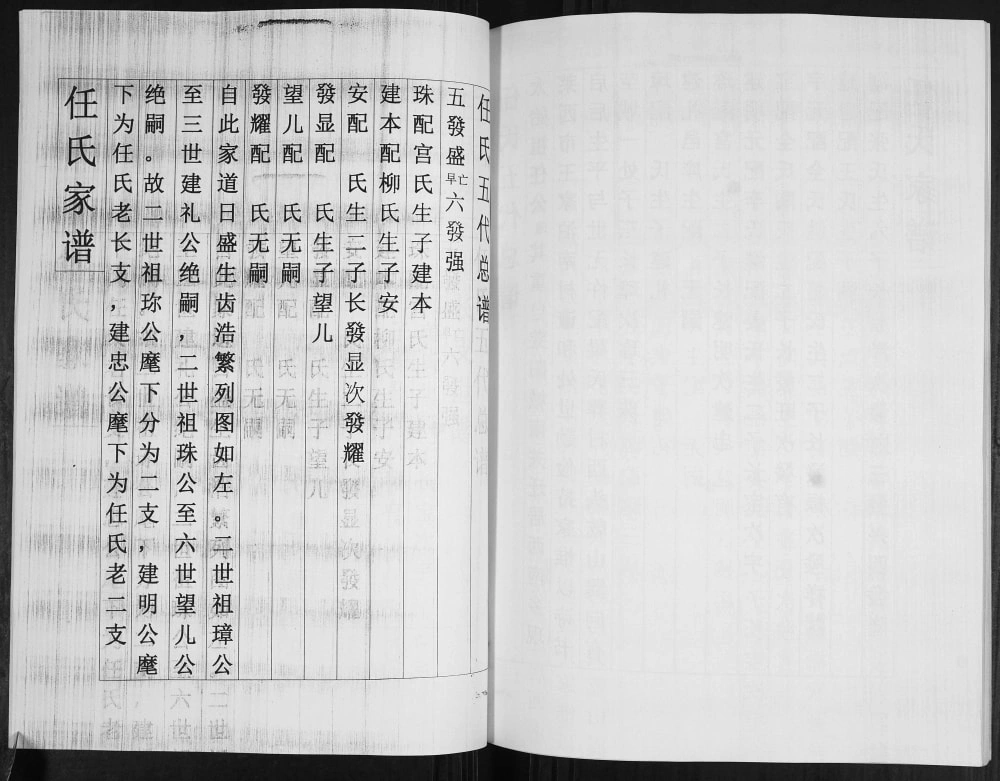 任氏五代总谱
五發盛早亡六發强
珠配宫氏生子建本
建本配柳氏生子安
安配　氏生二子长發显次發耀
發显配　氏生子望儿
望儿配　氏无嗣
發耀配　氏无嗣
自此家道日盛生齿浩繁列图如左。二世祖璋公
至三世建礼公绝嗣，二世祖珠公至六世望儿公
绝嗣。故二世祖珎公麾下分为二支，建明公麾
下为任氏老长支，建忠公麾下为任氏老二支
任氏家谱